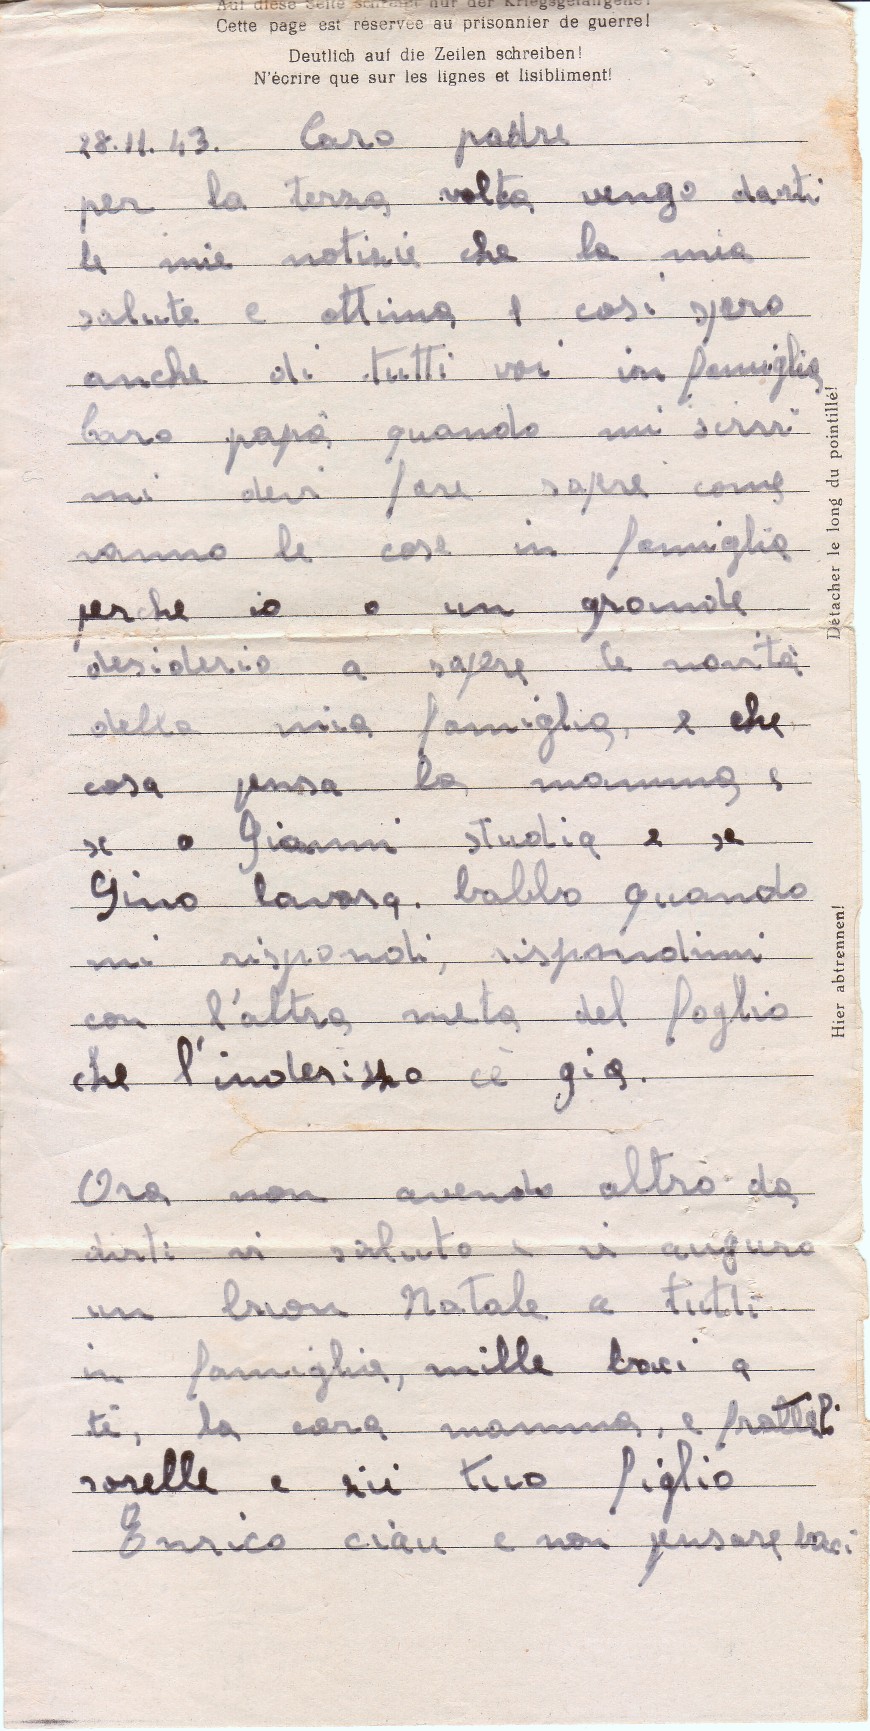 Auf diese Seite schreibt nur der Kriegsgefangene!
Cette page est réservée au prisonnier de guerre!
Deutlich auf die Zeilen schreiben!
N'écrire que sur les lignes et lisibliment!
28.11.43. Caro padre
per la terza volta vengo darti
le mie notizie che la mia
salute e ottima e cosi spero
anche di tutti voi in famiglia
Caro papà quando mi scrivi
mi devi fare sapere come
vanno le cose in famiglia
perche io o un grande
desiderio a sapere le novità
della mia famiglia, e che
cosa pensa la mamma e
se o Gianni studia e se
Gino lavora. babbo quando
mi rispondi, rispondimi
con l'altra meta del foglio
che l'inderizzo cè gia.
Ora non avendo altro da
dirti vi saluto e vi auguro
un buon Natale a tutti
in famiglia, mille baci a
te, la cara mamma, e frattelli
sorelle e zii tuo figlio
Enrico ciau e non pensare baci
Détacher le long du pointillé!
Hier abtrennen!